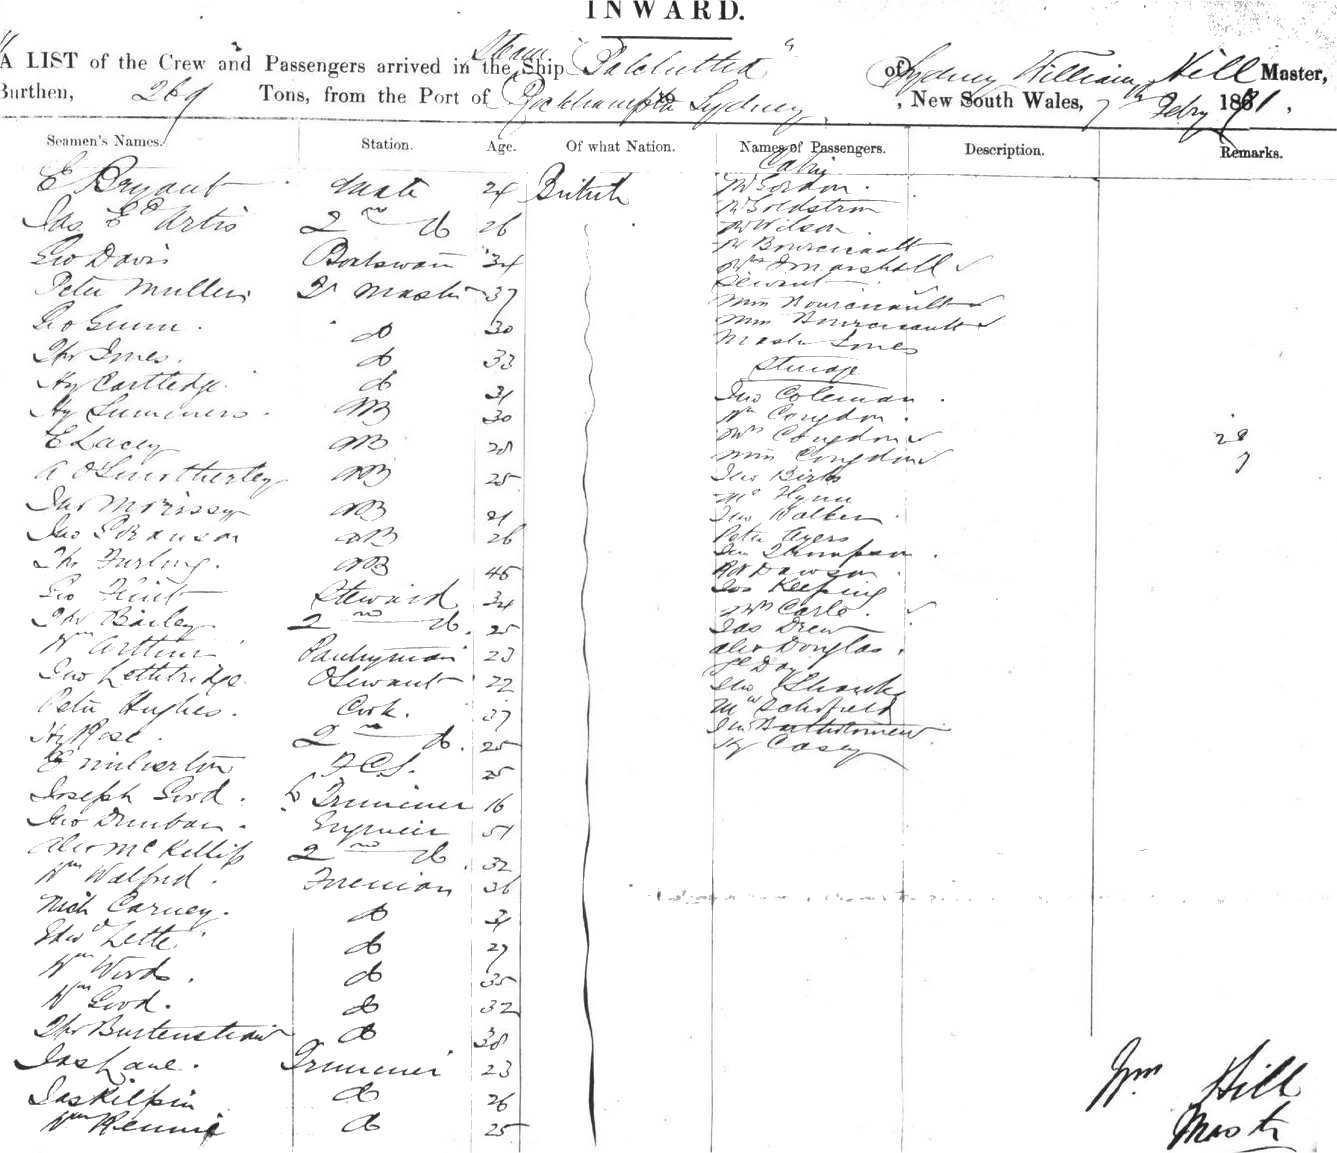 INWARD.
A LIST of the Crew and Passengers arrived in the Steam Ship "Balclutha" of Sydney William Hill Master,
Burthen, 269 Tons, from the Port of Rockhampton to Sydney, New South Wales, 7th Febry 1871,
Seamen's Names. Station. Age. Of what Nation. Names of Passengers. Description. Remarks.
Cabin
E Bryant Mate 24 British Mr Gordon
Jas Ed Artis 2nd do 26 Mr Goldstrom
Mr Wilson
Geo Davis Boatswain 34 Mr Bourcicault
Mrs Marshall
Peter Mullen Qr Master 37 Servant
Miss Bourcicault
Geo Gunn 30 Miss Bourcicault
do Master Jones
Thos Jones do 33 Steerage
Hy Cartledge do 31 Jno Coleman
Hy Summers AB 30 Wm Congdon
E Lacey AB 28 Mrs Congdon 28
Miss Congdon 7
A O Smotherley AB 25 Jno Birks
Flynn
Jno Morrissy AB 21 Jno Walker
Jno Branson AB 26 Peter Ayers
Jno Thompson
Thos Furling AB 45 Rot Dawson
Geo Flint Steward 34 Jos Keeping
Mrs Carlo
Thos Bailey 2nd do 25 Jas Drew
Wm Arthur Pantryman 23 Alex Douglas
Day
Jno Lethbridge O Servant 22 Jno
Peter Hughes Cook 37 Schofield
Hy Rose 2nd do 25 Jno Bartholomew
E Milverton F.C.S. 25 Hy Casey
Joseph Good Trimmer 16
Geo Dunbar Engineer 51
Alex McKillip 2nd do 32
Wm Walford Fireman 36
Nich Carney do 31
Edwd Lette do 27
Wm Woods do 35
Wm Good do 32
Thos Burtenshaw do 38
Jas Lane Trimmer 23
Jas Kilpin do 26
Wm Rennie do 25
Wm Hill
Master